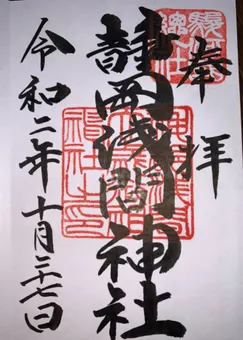 奉拝
静岡浅間神社
令和二年十月二十七日